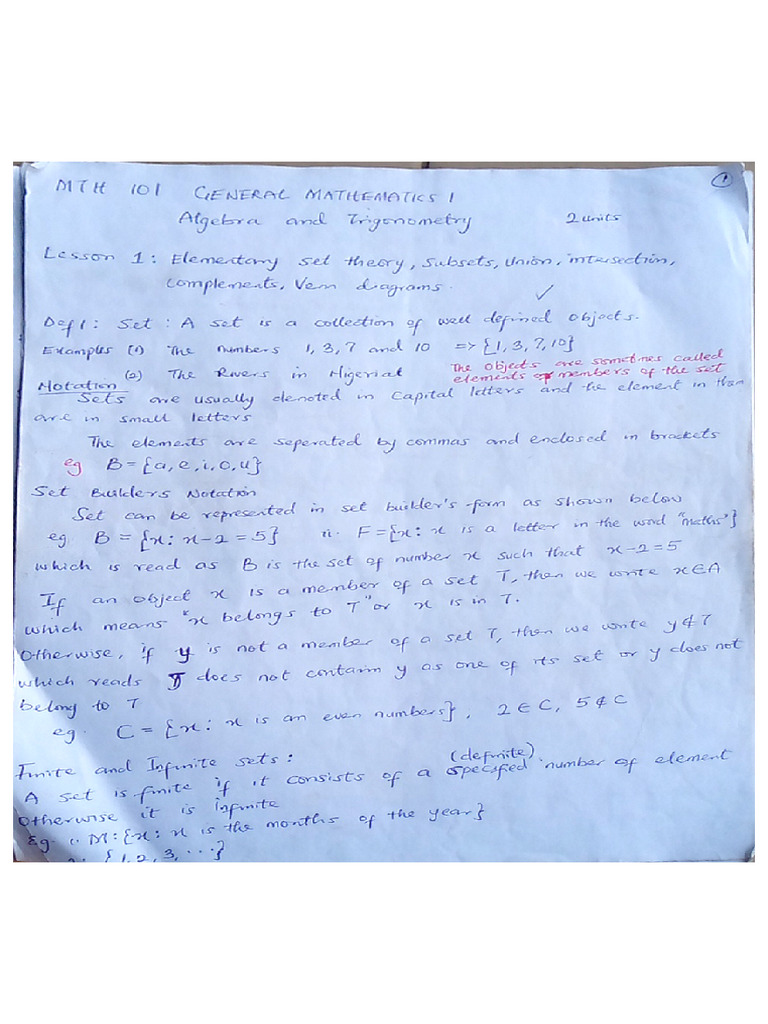 ①
MTH 101 GENERAL MATHEMATICS 1
Algebra and Trigonometry 2 units
Lesson 1: Elementary set theory, Subsets, Union, intersection,
complements, Venn diagrams.
Def 1: Set: A set is a collection of well defined objects.
Examples (1) The numbers 1, 3, 7 and 10 => {1, 3, 7, 10}
(2) The Rivers in Nigeria
The objects are sometimes called
elements or members of the set
Notation
Sets are usually denoted in Capital letters and the element in them
are in small letters
The elements are seperated by commas and enclosed in brackets
eg B = {a, e, i, o, u}
Set Builders Notation
Set can be represented in set builder's form as shown below
eg. B = {x: x-2=5} ii. F={x: x is a letter in the word "maths"}
which is read as B is the set of number x such that x-2=5
If an object x is a member of a set T, then we write x∈A
which means "x belongs to T" or x is in T.
Otherwise, if y is not a member of a set T, then we write y∉T
which reads T does not contain y as one of its set or y does not
belong to T
eg. C = {x: x is an even numbers}, 2 ∈ C, 5 ∉ C
Finite and Infinite sets:
(definite)
A set is finite if it consists of a specified number of element
otherwise it is infinite
Eg. i. M:{x: x is the months of the year}
{1, 2, 3, ...}